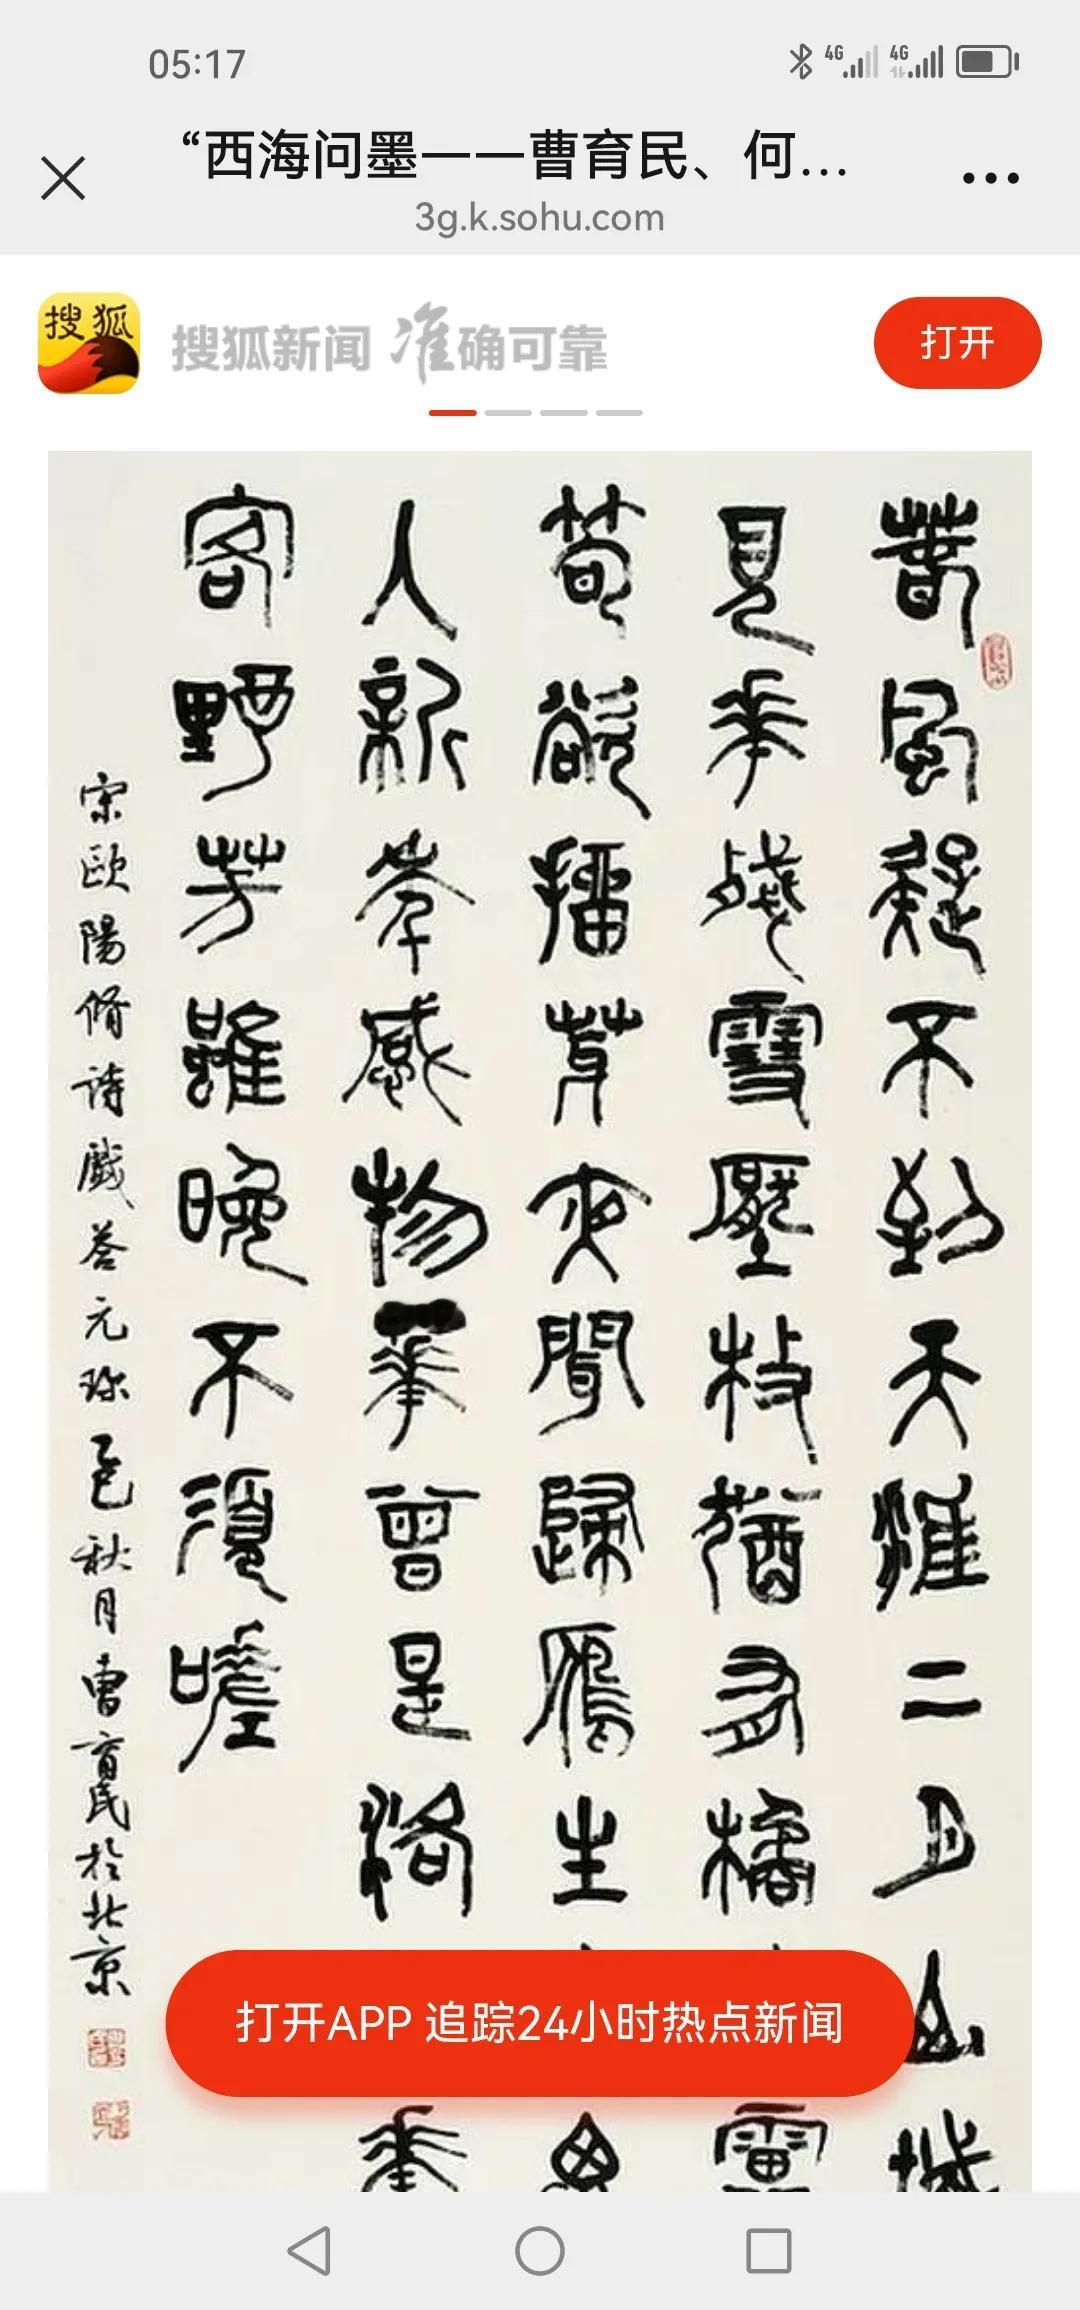 05:17
4G 4G
“西海问墨——曹育民、何...
3g.k.sohu.com
搜狐
搜狐新闻 准确可靠
打开
春風疑不到天涯二月山城
見華殘雪壓枝猶有橘雷
筍欲抽芽夜聞歸鴈生思
人新年感物華曾是洛華
客野芳雖晚不須嗟
宋歐陽脩詩戲答元珍乙巳秋月曹育民於北京
打开APP 追踪24小时热点新闻